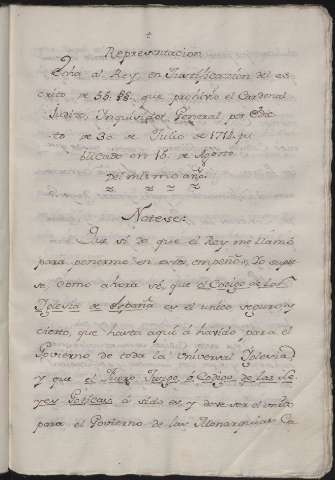 Representacion
Echa al Rey, en Justificazion del es
crito de 55. §§. que prohivio el Cardenal
Judize, Inquisidor General por Edic
to de 30 de Julio de 1714. pu
blicado en 15. de Agosto
del mismo año.
Notese:
Que si de que el Rey me llamó
para ponerme en estos empeños, lo supie
se, como ahora sé, que el Codigo de las
Yglesia de España es el unico seguro, y
cierto, que hasta aqui á havido para el
Govierno de toda la Universal Yglesia,
y que el Fuero Juzgo, ó Codigo de las Le
yes Goticas á sido es, y deve ser el unico
para el Govierno de las Monarquias Ca